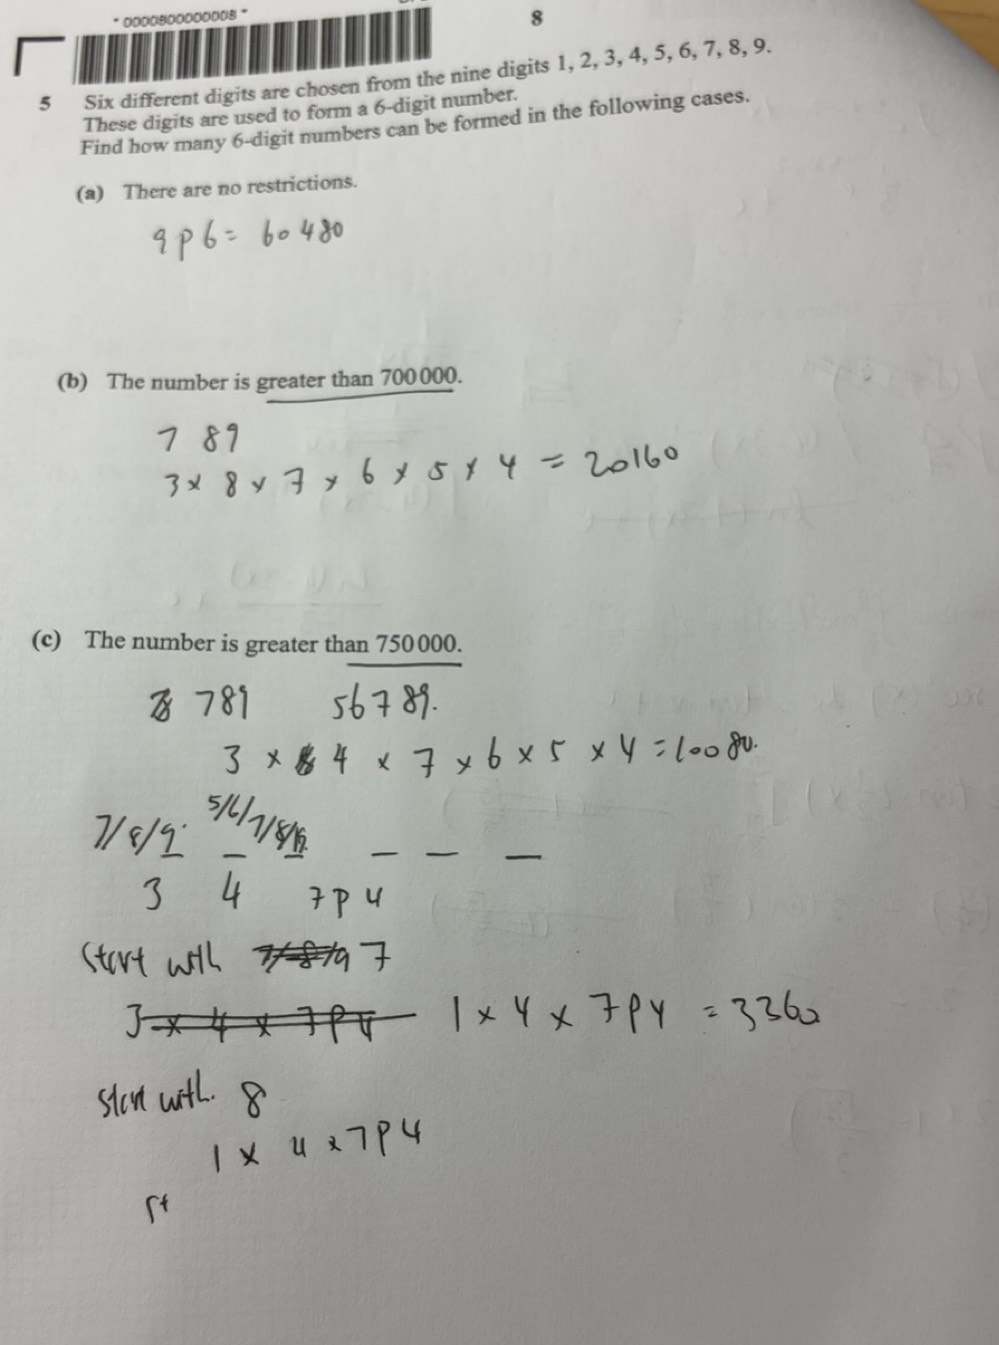 * 0000800000008 *
8
5 Six different digits are chosen from the nine digits 1, 2, 3, 4, 5, 6, 7, 8, 9.
These digits are used to form a 6-digit number.
Find how many 6-digit numbers can be formed in the following cases.
(a) There are no restrictions.
9P6 = 60480
(b) The number is greater than 700 000.
7 89
3 × 8 × 7 × 6 × 5 × 4 = 20160
(c) The number is greater than 750 000.
789 56789.
3 × 4 × 7 × 6 × 5 × 4 = 10080.
7/8/9. 5/6/7/8/9.
3 4 7P4
Start with 7/8/9 7
3 × 4 × 7P4 1 × 4 × 7P4 = 3360
Start with. 8
1 × 4 × 7P4
St